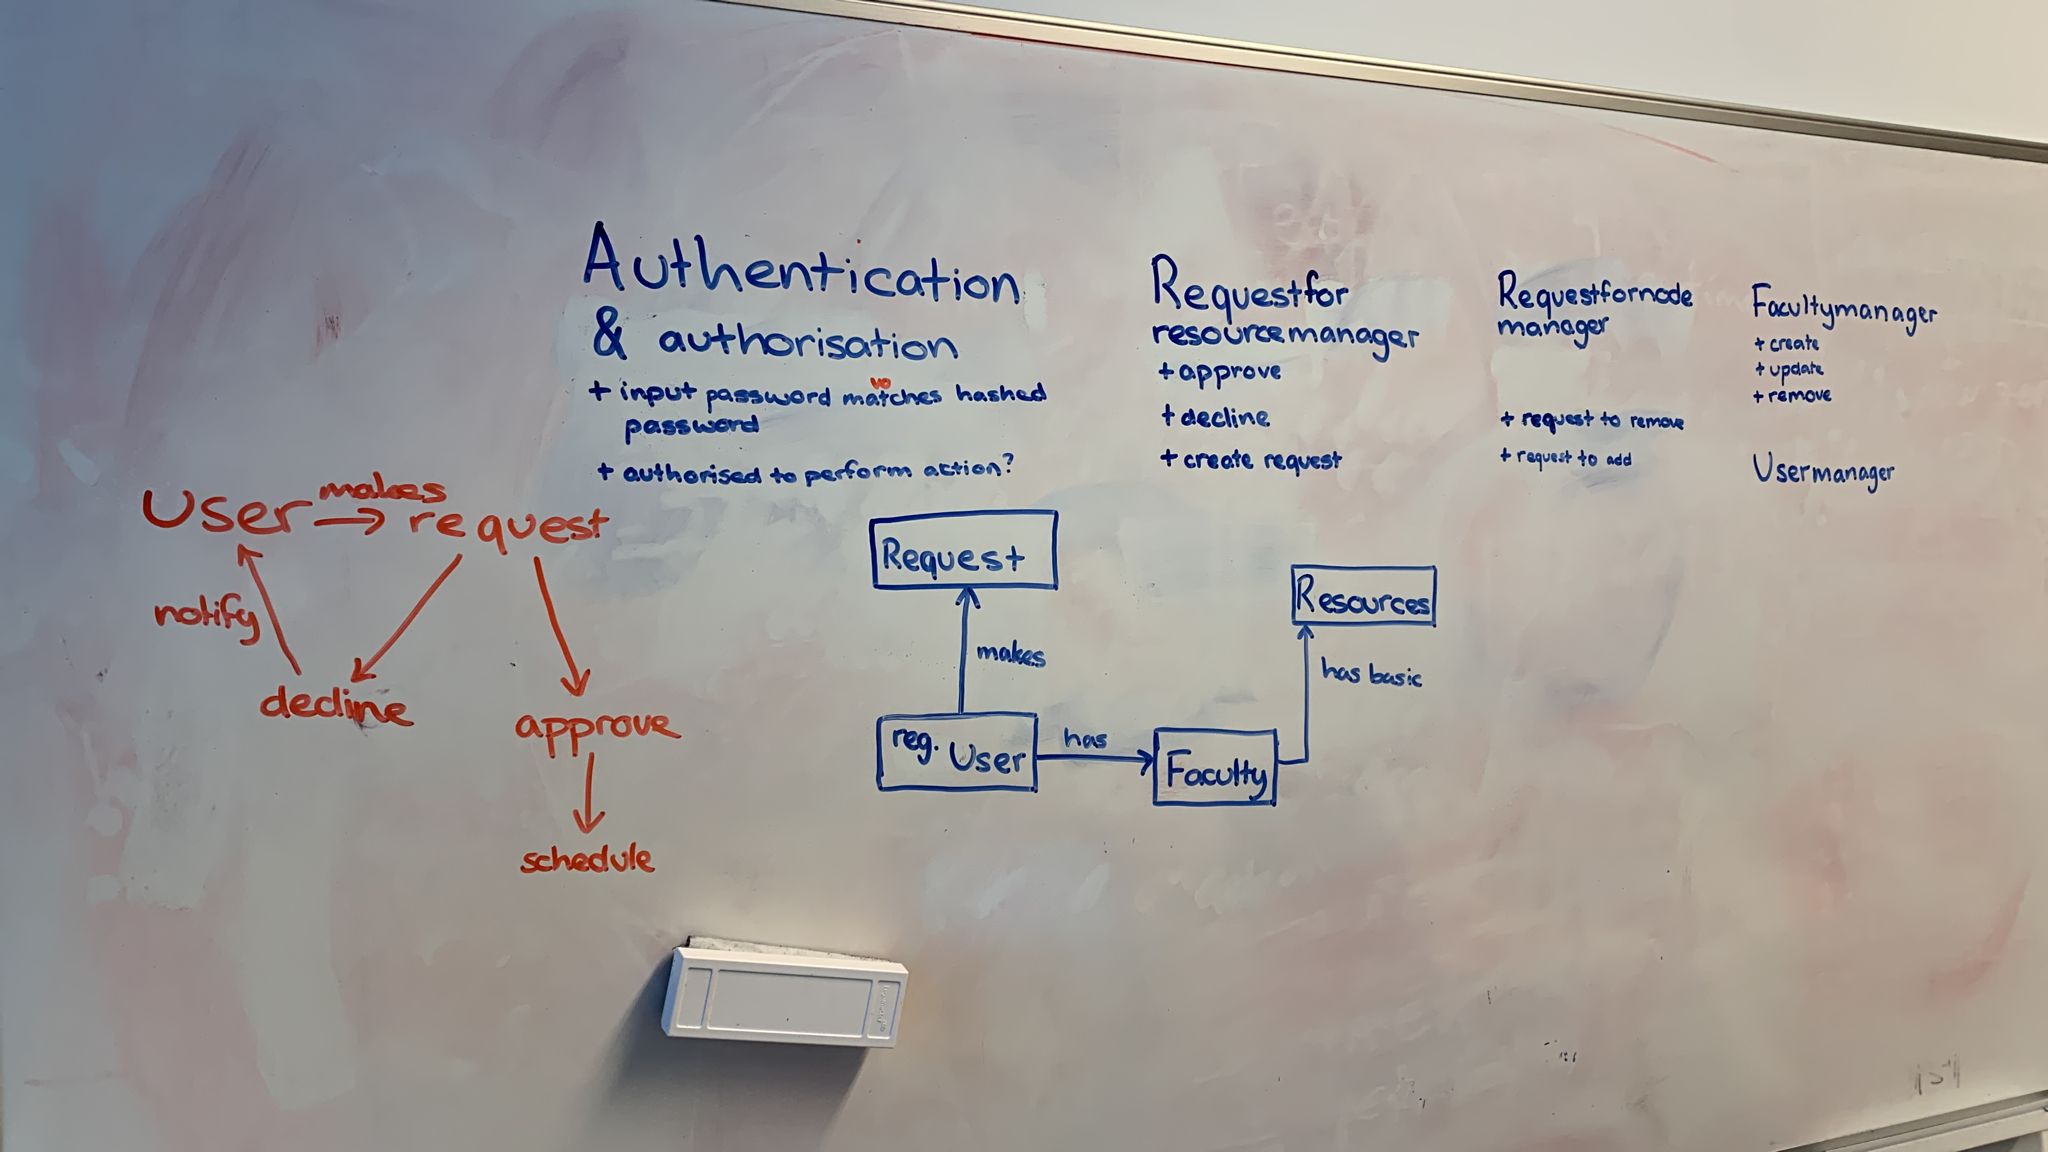 Authentication
& authorisation
+ input password matches hashed
password
+ authorised to perform action?
Requestfor
resourcemanager
+ approve
+ decline
+ create request
Requestfornode
manager
+ request to remove
+ request to add
Facultymanager
+ create
+ update
+ remove
Usermanager
User makes request
notify
decline
approve
schedule
Request
makes
reg. User
has
Faculty
has basic
Resources